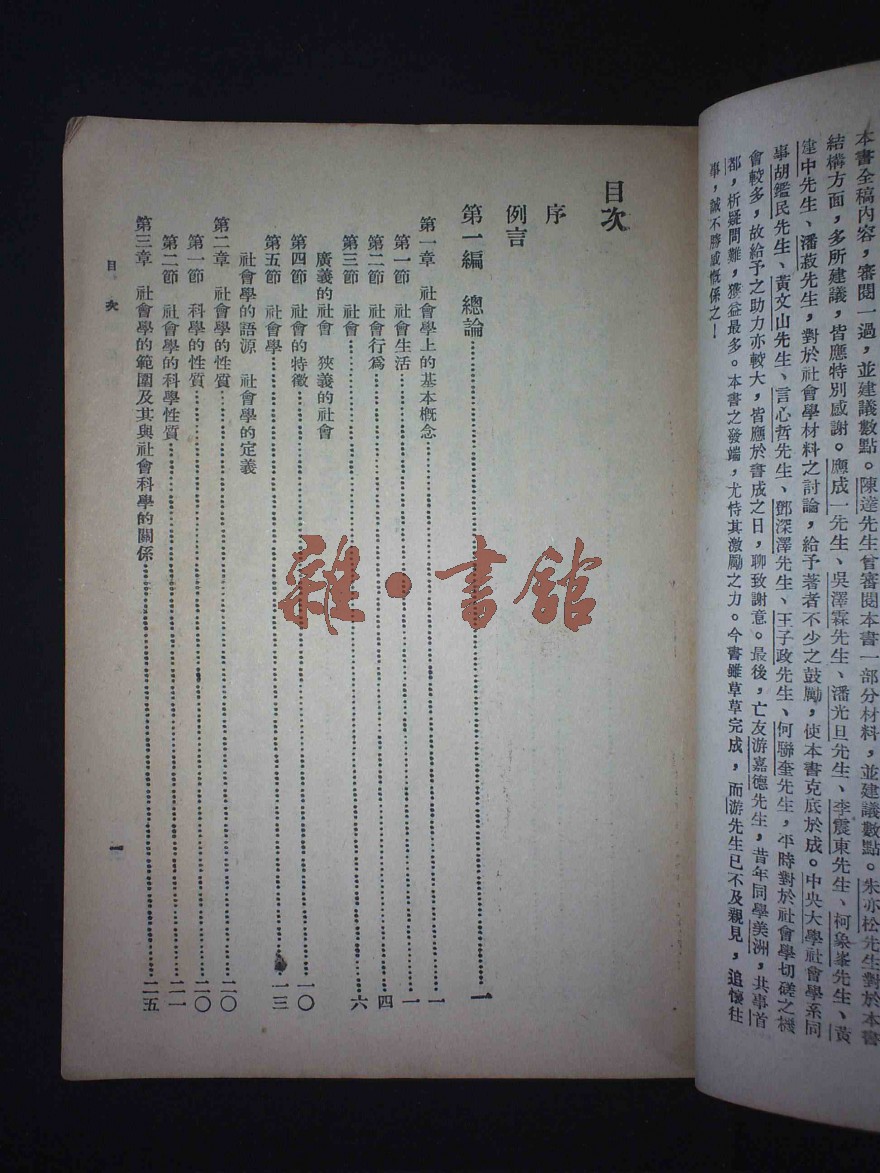 本書全稿內容，審閱一過，並建議數點。陳達先生曾審閱本書一部分材料，並建議數點。朱亦松先生對於本書
結構方面，多所建議，皆應特別感謝。應成一先生、吳澤霖先生、潘光旦先生、李震東先生、柯象峯先生、黃
建中先生、潘菽先生，對於社會學材料之討論，給予著者不少之鼓勵，使本書克底於成。中央大學社會學系同
事胡鑑民先生、黃文山先生、言心哲先生、鄧深澤先生、王子政先生、何聯奎先生，平時對於社會學切磋之機
會較多，故給予之助力亦較大，皆應於書成之日，聊致謝意。最後，亡友游嘉德先生，昔年同學美洲，共事首
都，析疑問難，獲益最多。本書之發端，尤恃其激勵之力。今書雖草草完成，而游先生已不及親見，追懷往
事，誠不勝感慨係之！
目次
序
例言
第一編 總論……一
第一章 社會學上的基本概念……一
第一節 社會生活……一
第二節 社會行為……四
第三節 社會……六
廣義的社會 狹義的社會
第四節 社會的特徵……一〇
第五節 社會學……一三
社會學的語源 社會學的定義
第二章 社會學的性質……二〇
第一節 科學的性質……二〇
第二節 社會學的科學性質……二一
第三章 社會學的範圍及其與社會科學的關係……二五
目次
一
雜·書館